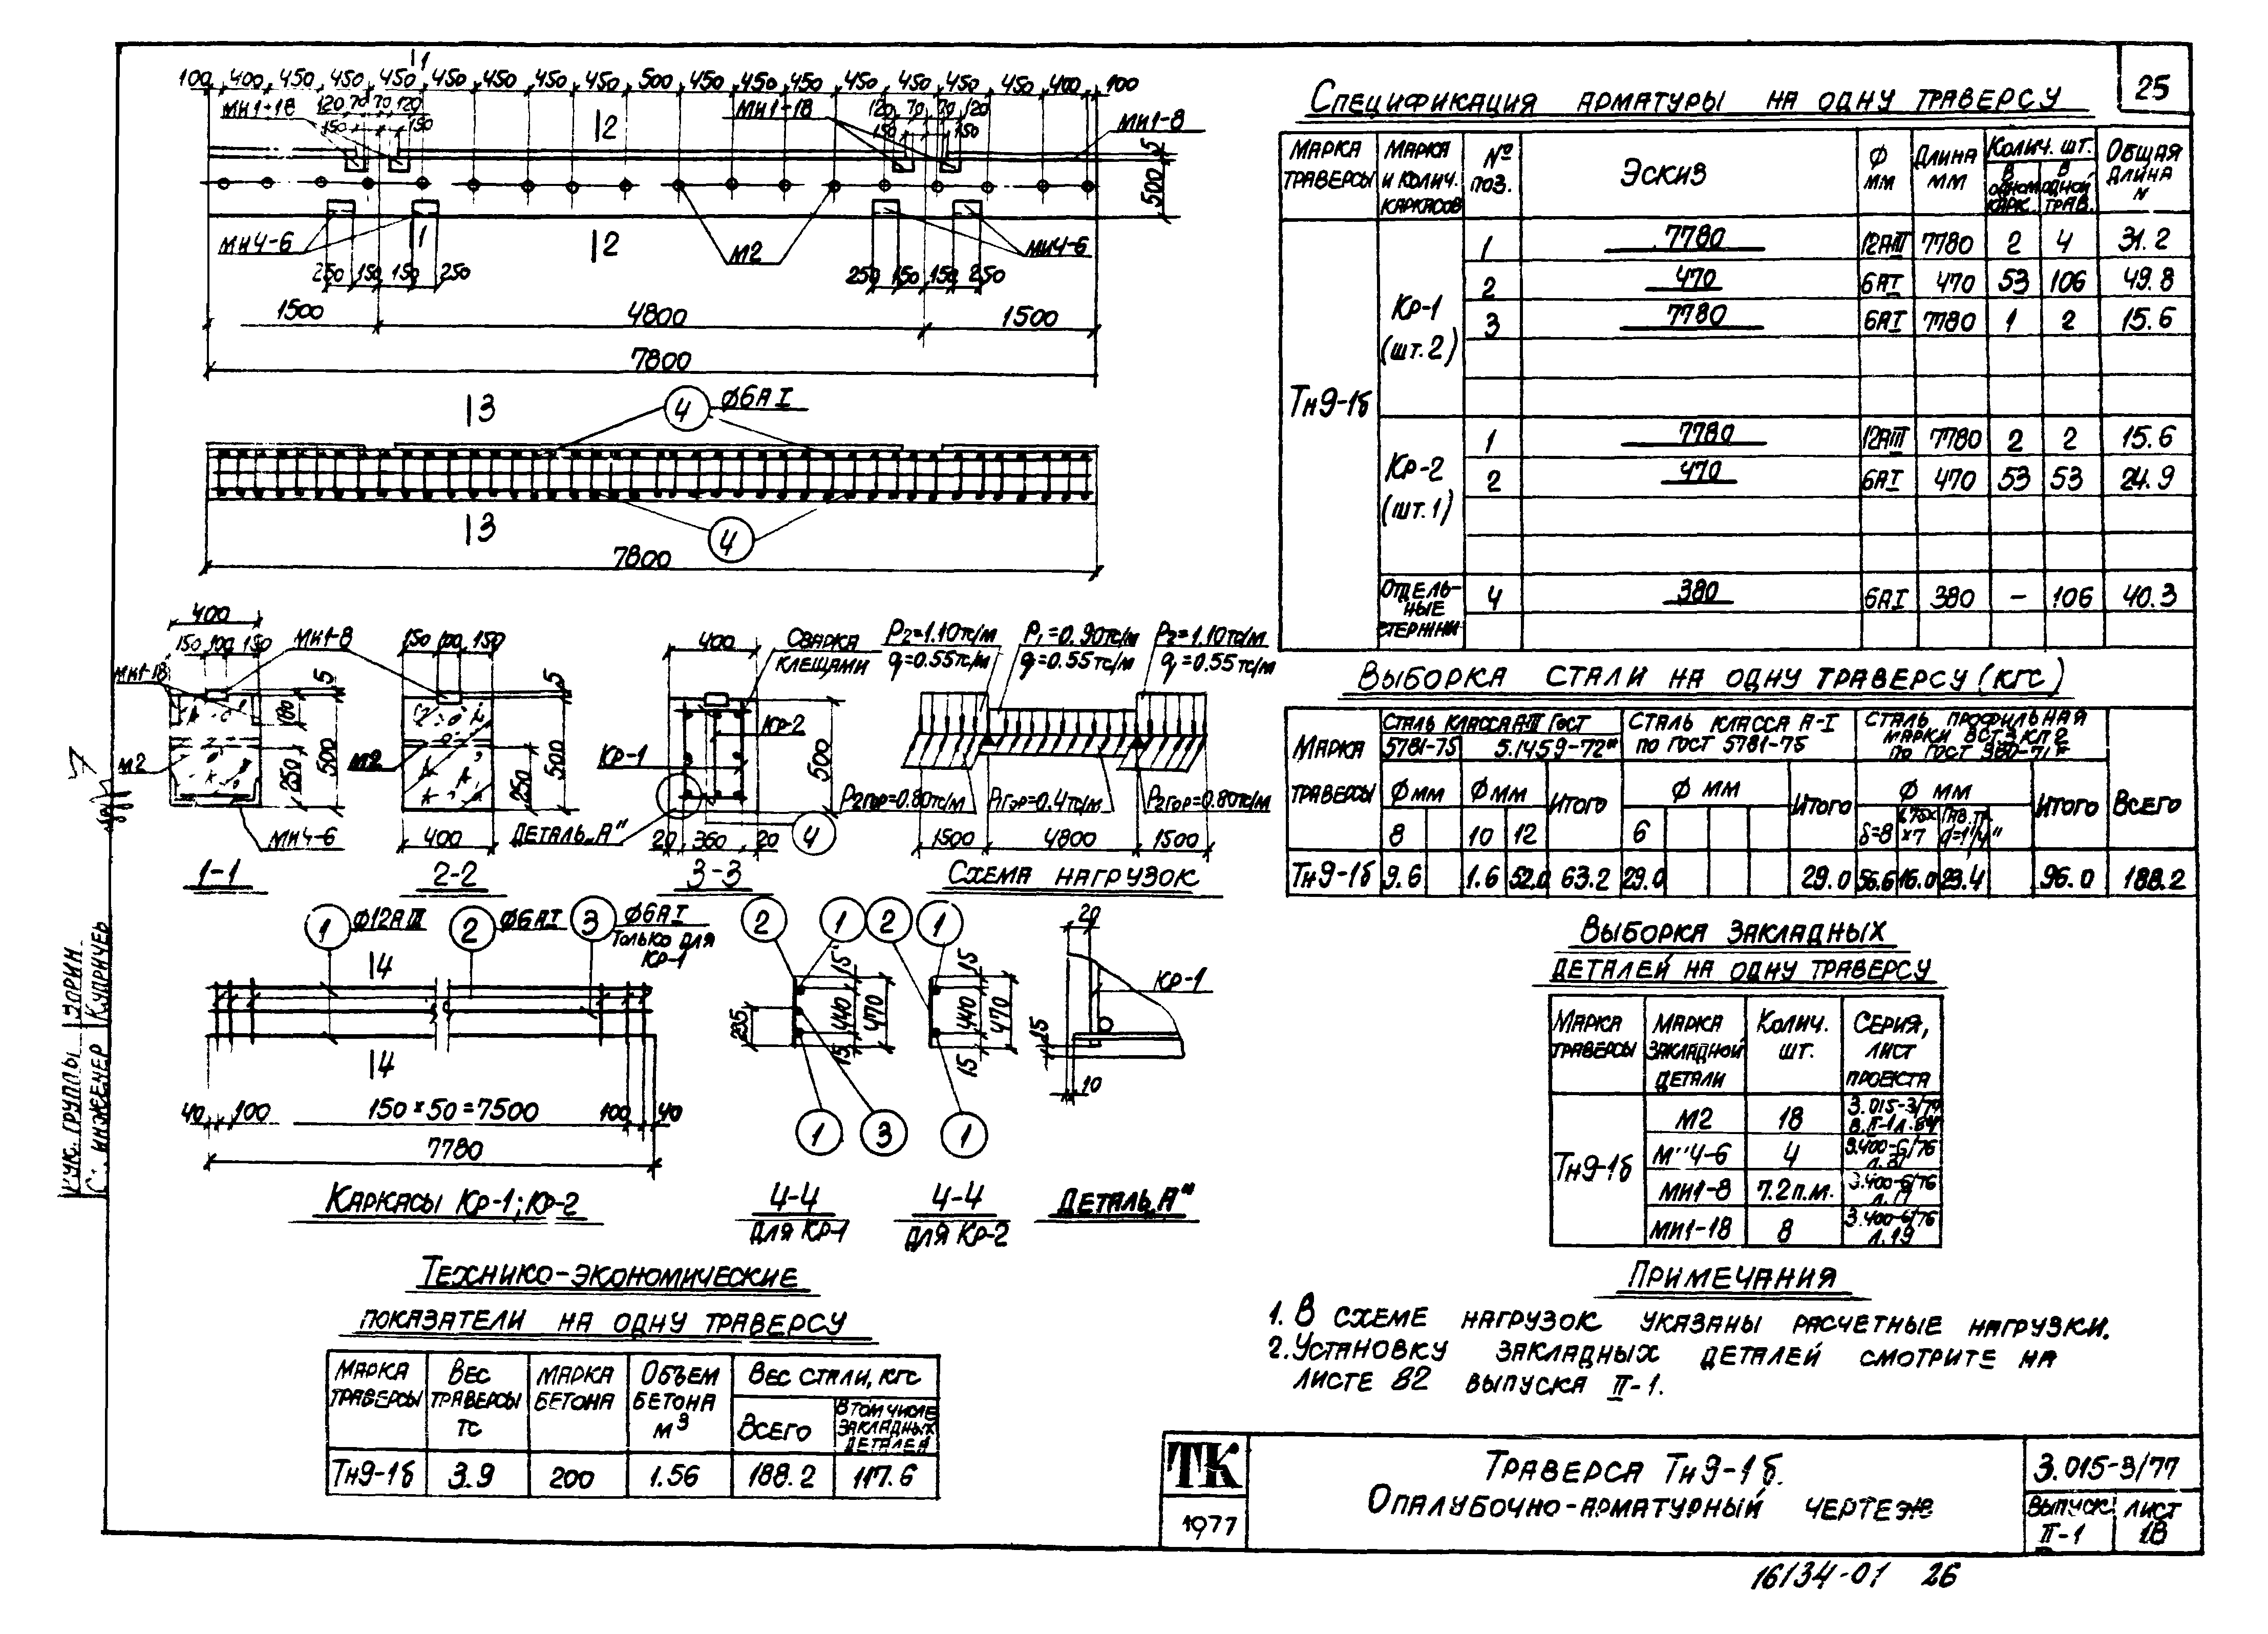 25
100 400 450 450 450 450 450 450 450 500 450 450 450 450 450 450 450 400 100
1
МИ1-18 120 70 70 120 МИ1-18 120 70 70 120 МИ1-8
150 150 150 150
2
5
500
МИ4-6 1 2 М2 МИ4-6
250 150 150 250 250 150 150 250
1500 4800 1500
7800
3 4 Ø6АI
3 4
7800
400
150 100 150 МИ1-8 150 100 150
МИ1-18 5 5
100 500 500
М2 250 М2 250
МИ4-6 400
1-1 2-2
400 Сварка клещами
Кр-2
Кр-1 500
Деталь „А" 20 360 20 4
3-3
P2=1.10тс/м P1=0.90тс/м P2=1.10тс/м
q=0.55тс/м q=0.55тс/м q=0.55тс/м
P2гор=0.80тс/м P1гор=0.4тс/м P2гор=0.80тс/м
1500 4800 1500
Схема нагрузок
1 Ø12АIII 2 Ø6АI 3 Ø6АI
только для
Кр-1
4
4
40 100 150×50=7500 100 40
7780
Каркасы Кр-1; Кр-2
2 1 2 1
15 15
235 440 470 440 470
15 15
1 3 1
4-4 4-4
для Кр-1 для Кр-2
20
Кр-1
15
10
Деталь „А"
Технико-экономические
показатели на одну траверсу
Марка траверсы Вес траверсы тс Марка бетона Объем бетона м3 Вес стали, кгс
Всего В том числе закладных деталей
Тн9-1б 3.9 200 1.56 188.2 117.6
Спецификация арматуры на одну траверсу
Марка траверсы Марка и колич. каркасов № поз. Эскиз Ф мм Длина мм Колич. шт. Общая длина м
В одном карк. В одной трав.
Тн9-1б
Кр-1 (шт. 2)
1 7780 12АIII 7780 2 4 31.2
2 470 6АI 470 53 106 49.8
3 7780 6АI 7780 1 2 15.6
Кр-2 (шт. 1)
1 7780 12АIII 7780 2 2 15.6
2 470 6АI 470 53 53 24.9
Отдельные стержни 4 380 6АI 380 – 106 40.3
Выборка стали на одну траверсу (кгс)
Марка траверсы Сталь класса А-III ГОСТ Сталь класса А-I по ГОСТ 5781-75 Сталь профильная марки ВСт3кп2 по ГОСТ 380-71* Всего
5781-75 5.1459-72*
Ф мм Ф мм Итого Ф мм Итого Ф мм Итого
8 10 12 6 δ=8
Тн9-1б 9.6 1.6 52.0 63.2 29.0 29.0 56.6 16.0 23.4 96.0 188.2
Выборка закладных
деталей на одну траверсу
Марка траверсы Марка закладной детали Колич. шт. Серия, лист проекта
Тн9-1б
М2 18
М"4-6 4 3.400-6/76
МИ1-8 7.2п.м. 3.400-6/76 л.17
МИ1-18 8 3.400-6/76 л.19
Примечания
1. В схеме нагрузок указаны расчетные нагрузки.
2. Установку закладных деталей смотрите на
листе 82 выпуска II-1.
ТК
1977
Траверса Тн9-1б.
Опалубочно-арматурный чертеж
3.015-3/77
Выпуск II-1 Лист 18
16134-01 26
Рук. группы Зорин
Ст. инженер